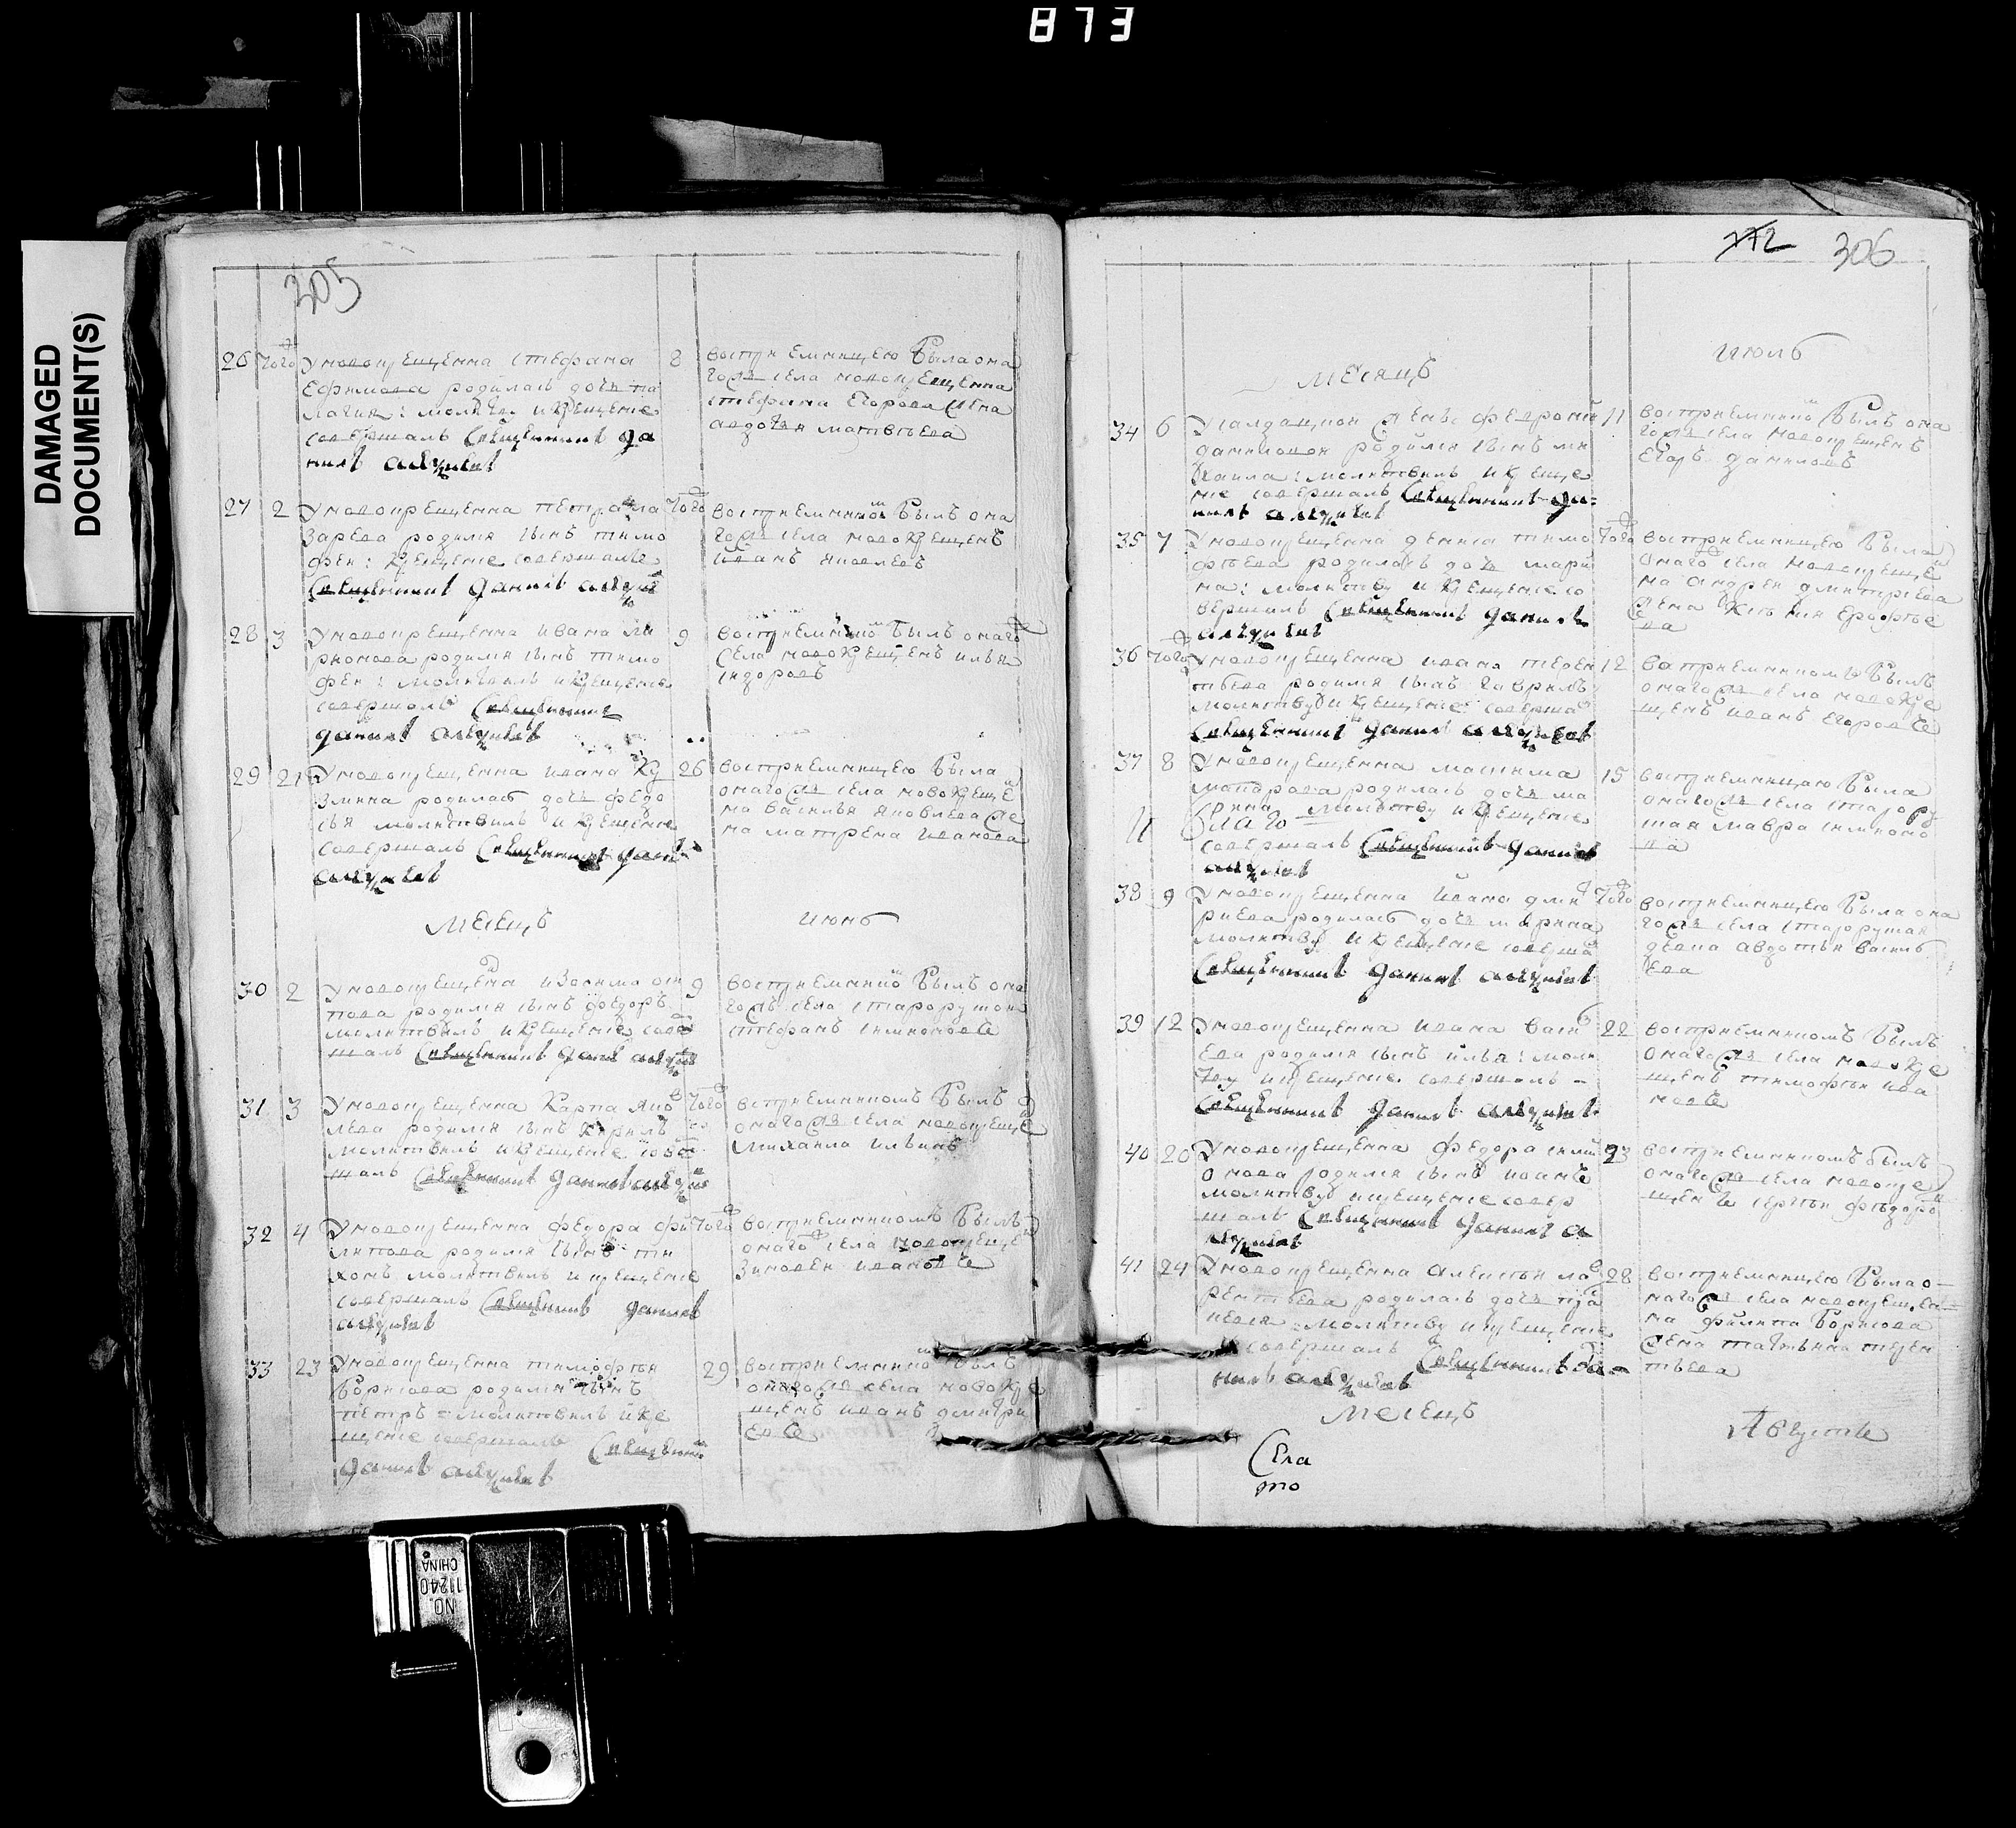 873
DAMAGED
DOCUMENT(S)
305
26 Того У новокрещенна Стефана
Ефимова родилась дочь па
лагия: молитв. и крещение
совершалъ священникъ Да
нилъ
8 восприемницею была она
гожъ села новокрещенна
Стефана Егорова жена
авдотья матвѣева
27 2 У новокрещенна Петра ла
зарева родился сынъ тимо
фей: крещение совершалъ
священникъ Данилъ
Того восприемникомъ былъ она
гожъ села новокрещенъ
Иванъ яковлевъ
28 3 У новокрещенна ивана ла
рионова родился сынъ тимо
фей: молитвилъ и крещение
совершалъ священникъ
Данилъ
9 восприемникомъ былъ онагожъ
села новокрещенъ илья
сидоровъ
29 21 У новокрещенна ивана ку
змина родилась дочь федо
сья молитвилъ и крещение
совершалъ священникъ Данилъ
26 восприемницею была
онагожъ села новокреще
на василья яковлева же
на матрена иванова
Месецъ июнь
30 2 У новокрещена изосима оси
пова родился сынъ федоръ
молитвилъ и крещение совер
шалъ священникъ Данилъ
9 восприемникомъ былъ она
гожъ села старорушанинъ
стефанъ симионовъ
31 3 У новокрещенна Карпа яков
лева родился сынъ Кирилъ
молитвилъ и крещение совер
шалъ священникъ Данилъ
Того восприемникомъ былъ
онагожъ села новокреще
михаила ильинъ
32 4 У новокрещенна федора фи
липова родился сынъ ти
хонъ молитвилъ и крещение
совершалъ священникъ Данилъ
Того восприемникомъ былъ
онагожъ села новокреще
Зиновей ивановъ
33 23 У новокрещенна тимофея
борисова родился сынъ
петръ молитвилъ и кре
щение совершалъ священникъ
Данилъ
29 восприемникомъ былъ
онагожъ села новокре
щенъ иванъ дмитри
евъ
272 306
Месяцъ июль
34 6 У салдацкой жены федросьи
даниловой родился сынъ ми
хаила: молитвилъ и креще
ние совершалъ священникъ Да-
нилъ
11 восприемникомъ былъ она
гожъ села новокрещенъ
Егоръ даниловъ
35 7 У новокрещенна дениса тимо
фѣева родилась дочь мари
на: молитву и крещение со
вершалъ священникъ Данилъ
Того восприемницею была
онагожъ села новокреще
на андрея дмитриева
жена Ксения ерофѣе
ва
36 Того У новокрещенна ивана терен
тьева родился сынъ гаврилъ
молитву и крещение соверша
священникъ Данилъ
12 восприемникомъ былъ
онагожъ села новокре
щенъ иванъ егоровъ
37 8 У новокрещенна максима
макарова родилась дочь ма
рина молитву и крещение
благо
совершалъ священникъ Данилъ
15 восприемницею была
онагожъ села стару
шая мавра симионо
ва
38 9 У новокрещенна ивана дми
риева родилась дочь марина
молитву и крещение соверша
священникъ Данилъ
Того восприемницею была она
гожъ села старорушая
девка авдотья василь
ева
39 12 У новокрещенна ивана васи
ева родился сынъ илья: моли
тву и крещение совершалъ -
священникъ Данилъ
22 восприемникомъ былъ
онагожъ села новокре
щенъ тимофѣй ива
новъ
40 20 У новокрещенна федора сими
онова родился сынъ иванъ
молитву и крещение совер
шалъ священникъ Данилъ
23 восприемникомъ былъ
онагожъ села новокре
щенъ сергѣй фѣдоро
41 24 У новокрещенна алексѣя лав
рентьева родилась дочь пра
сковья молитву и крещение
совершалъ священникъ Да-
нилъ
28 восприемницею была о-
нагожъ села новокрещен
на филипа борисова
жена татьяна терен
тьева
Месецъ Августъ
NO.
11240
CHINA